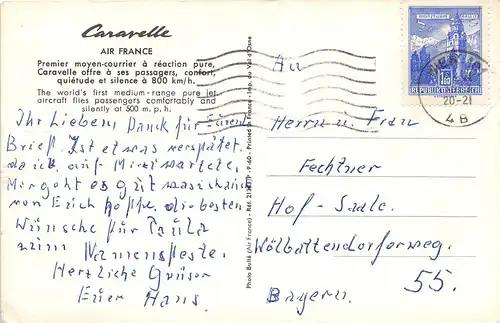 Caravelle
AIR FRANCE
Premier moyen-courrier à réaction pure,
Caravelle offre à ses passagers, confort,
quiétude et silence à 800 km/h.
The world's first medium-range pure jet
aircraft flies passengers comfortably and
silently at 500 m.p.h.
Ihr Lieben! Dank für Euren
Brief. Ist etwas verspätet,
da ich auf
Mir geht es gut was ich auch
von Euch hoffe, die besten
Wünsche für Paula
zum Namensfeste.
Herzliche Grüsse
Euer Hans
Printed in France - Imp. du Val d'Oise
Photo Bolté (Air France) - Réf.
REPUBLIK ÖSTERREICH
20-21
4 B
An
Herrn u. Frau
Fechtner
Hof - Saale.
Wölbattendorferweg.
55.
Bayern.